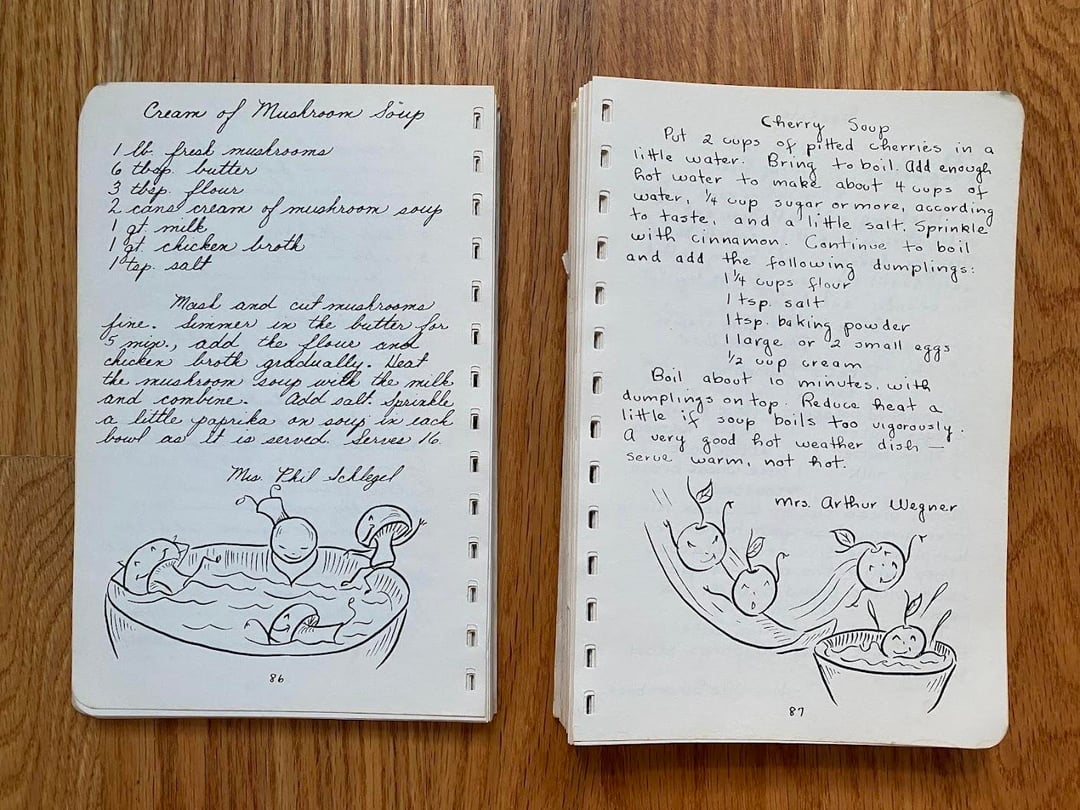 Cream of Mushroom Soup
1 lb. fresh mushrooms
6 tbsp. butter
3 tbsp. flour
2 cans cream of mushroom soup
1 qt milk
1 qt chicken broth
1 tsp. salt
Mash and cut mushrooms
fine. Simmer in the butter for
5 min., add the flour and
chicken broth gradually. Heat
the mushroom soup with the milk
and combine. Add salt. Sprinkle
a little paprika on soup in each
bowl as it is served. Serves 16.
Mrs. Phil Schlegel
86
Cherry Soup
Put 2 cups of pitted cherries in a
little water. Bring to boil. Add enough
hot water to make about 4 cups of
water, 1/4 cup sugar or more, according
to taste, and a little salt. Sprinkle
with cinnamon. Continue to boil
and add the following dumplings:
1 1/4 cups flour
1 tsp. salt
1 tsp. baking powder
1 large or 2 small eggs
1/2 cup cream
Boil about 10 minutes, with
dumplings on top. Reduce heat a
little if soup boils too vigorously.
A very good hot weather dish —
serve warm, not hot.
Mrs. Arthur Wegner
87